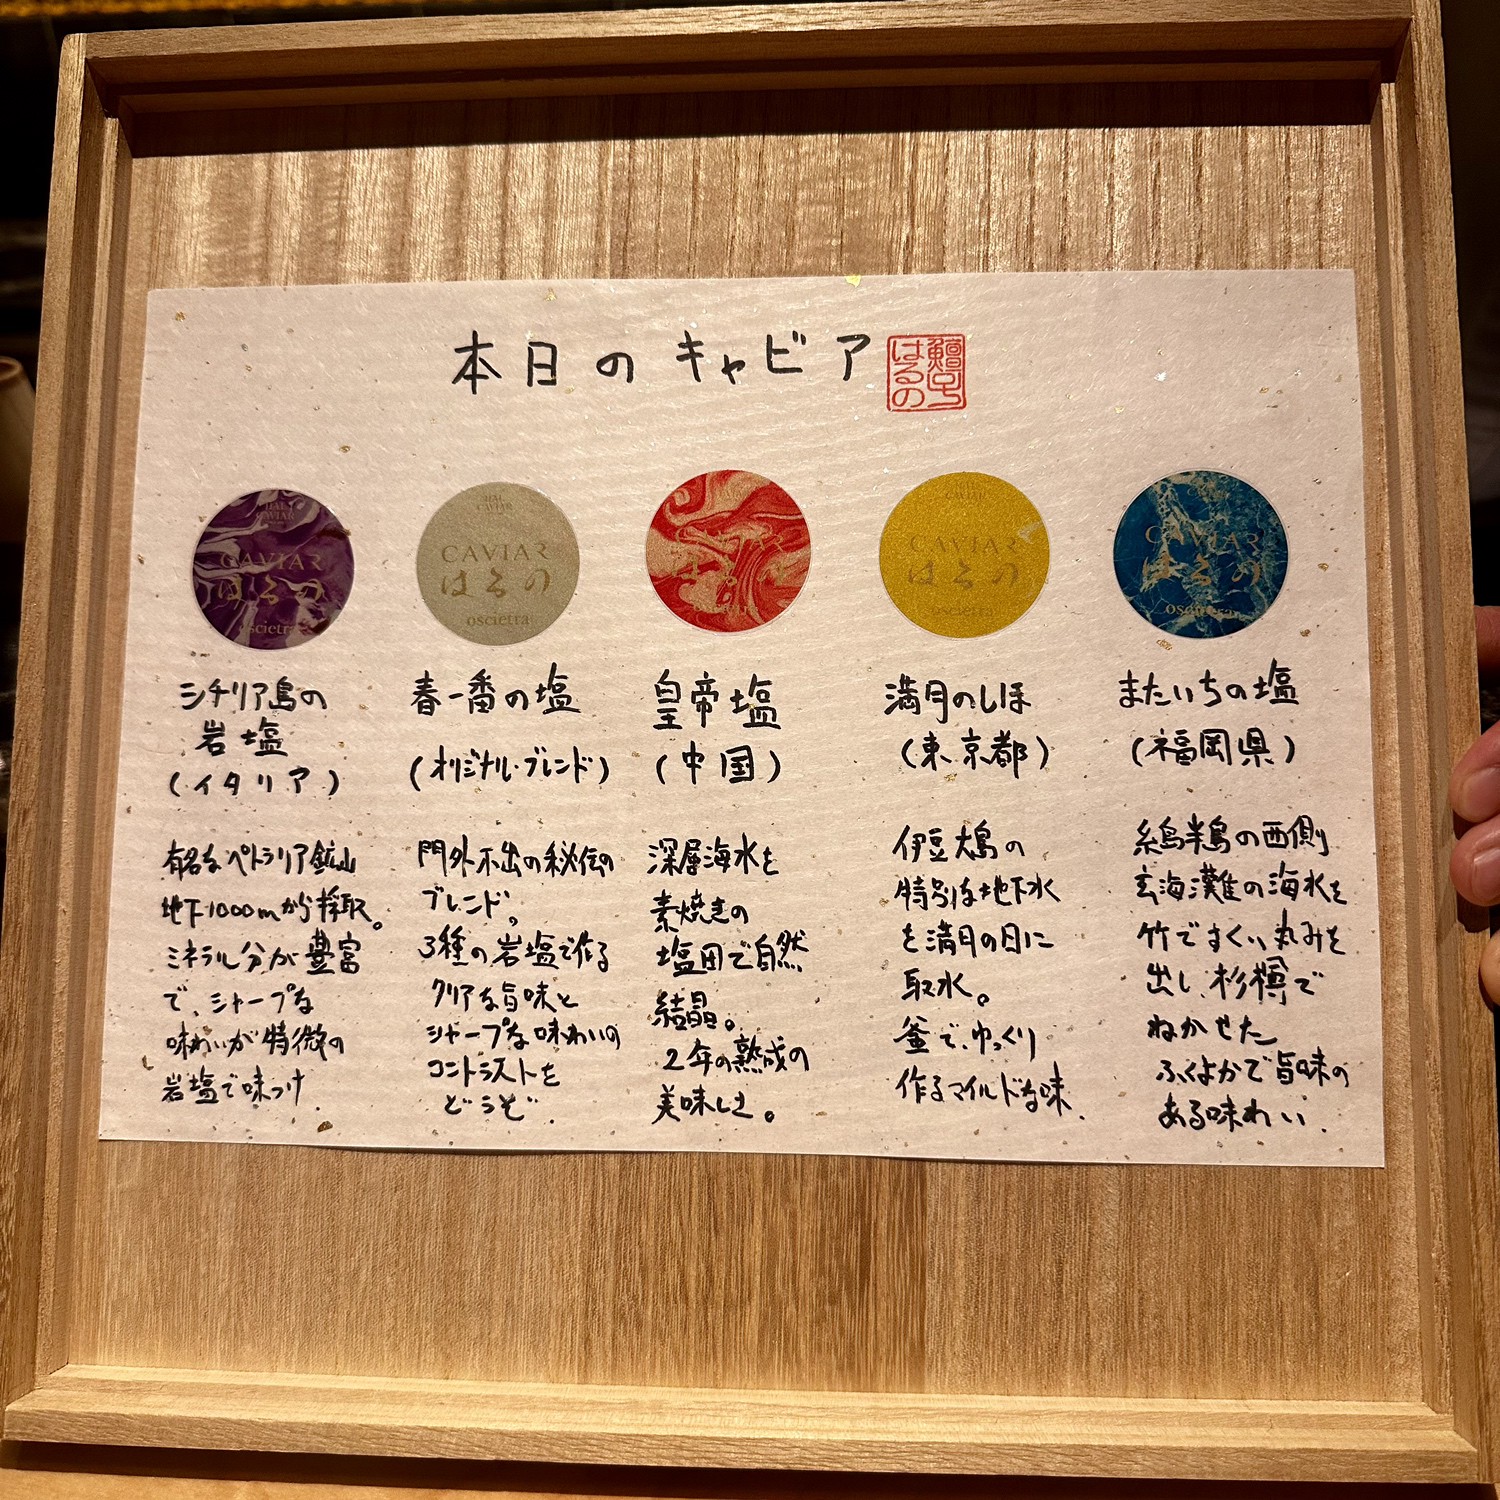 本日のキャビア
鱘号
はるの
HAL
CAVIAR
CAVIAR
はるの
oscietra
シチリア島の
岩塩
(イタリア)
有名なペトラリア鉱山
地下1000mから採取。
ミネラル分が豊富
で、シャープな
味わいが特徴の
岩塩で味つけ.
HAL
CAVIAR
CAVIAR
はるの
oscietra
春一番の塩
(オリジナル・ブレンド)
門外不出の秘伝の
ブレンド。
3種の岩塩で作る
クリアな旨味と
シャープな味わいの
コントラストを
どうぞ.
oscietra
皇帝塩
(中国)
深層海水を
素焼きの
塩田で自然
結晶。
2年の熟成の
美味しさ。
HAL
CAVIAR
CAVIAR
はるの
oscietra
満月のしほ
(東京都)
伊豆大島の
特別な地下水
を満月の日に
取水。
釜で、ゆっくり
作るマイルドな味.
CAVIAR
はるの
oscietra
またいちの塩
(福岡県)
糸島半島の西側
玄海灘の海水を
竹ですくい丸みを
出し、杉樽で
ねかせた
ふくよかで旨味の
ある味わい.